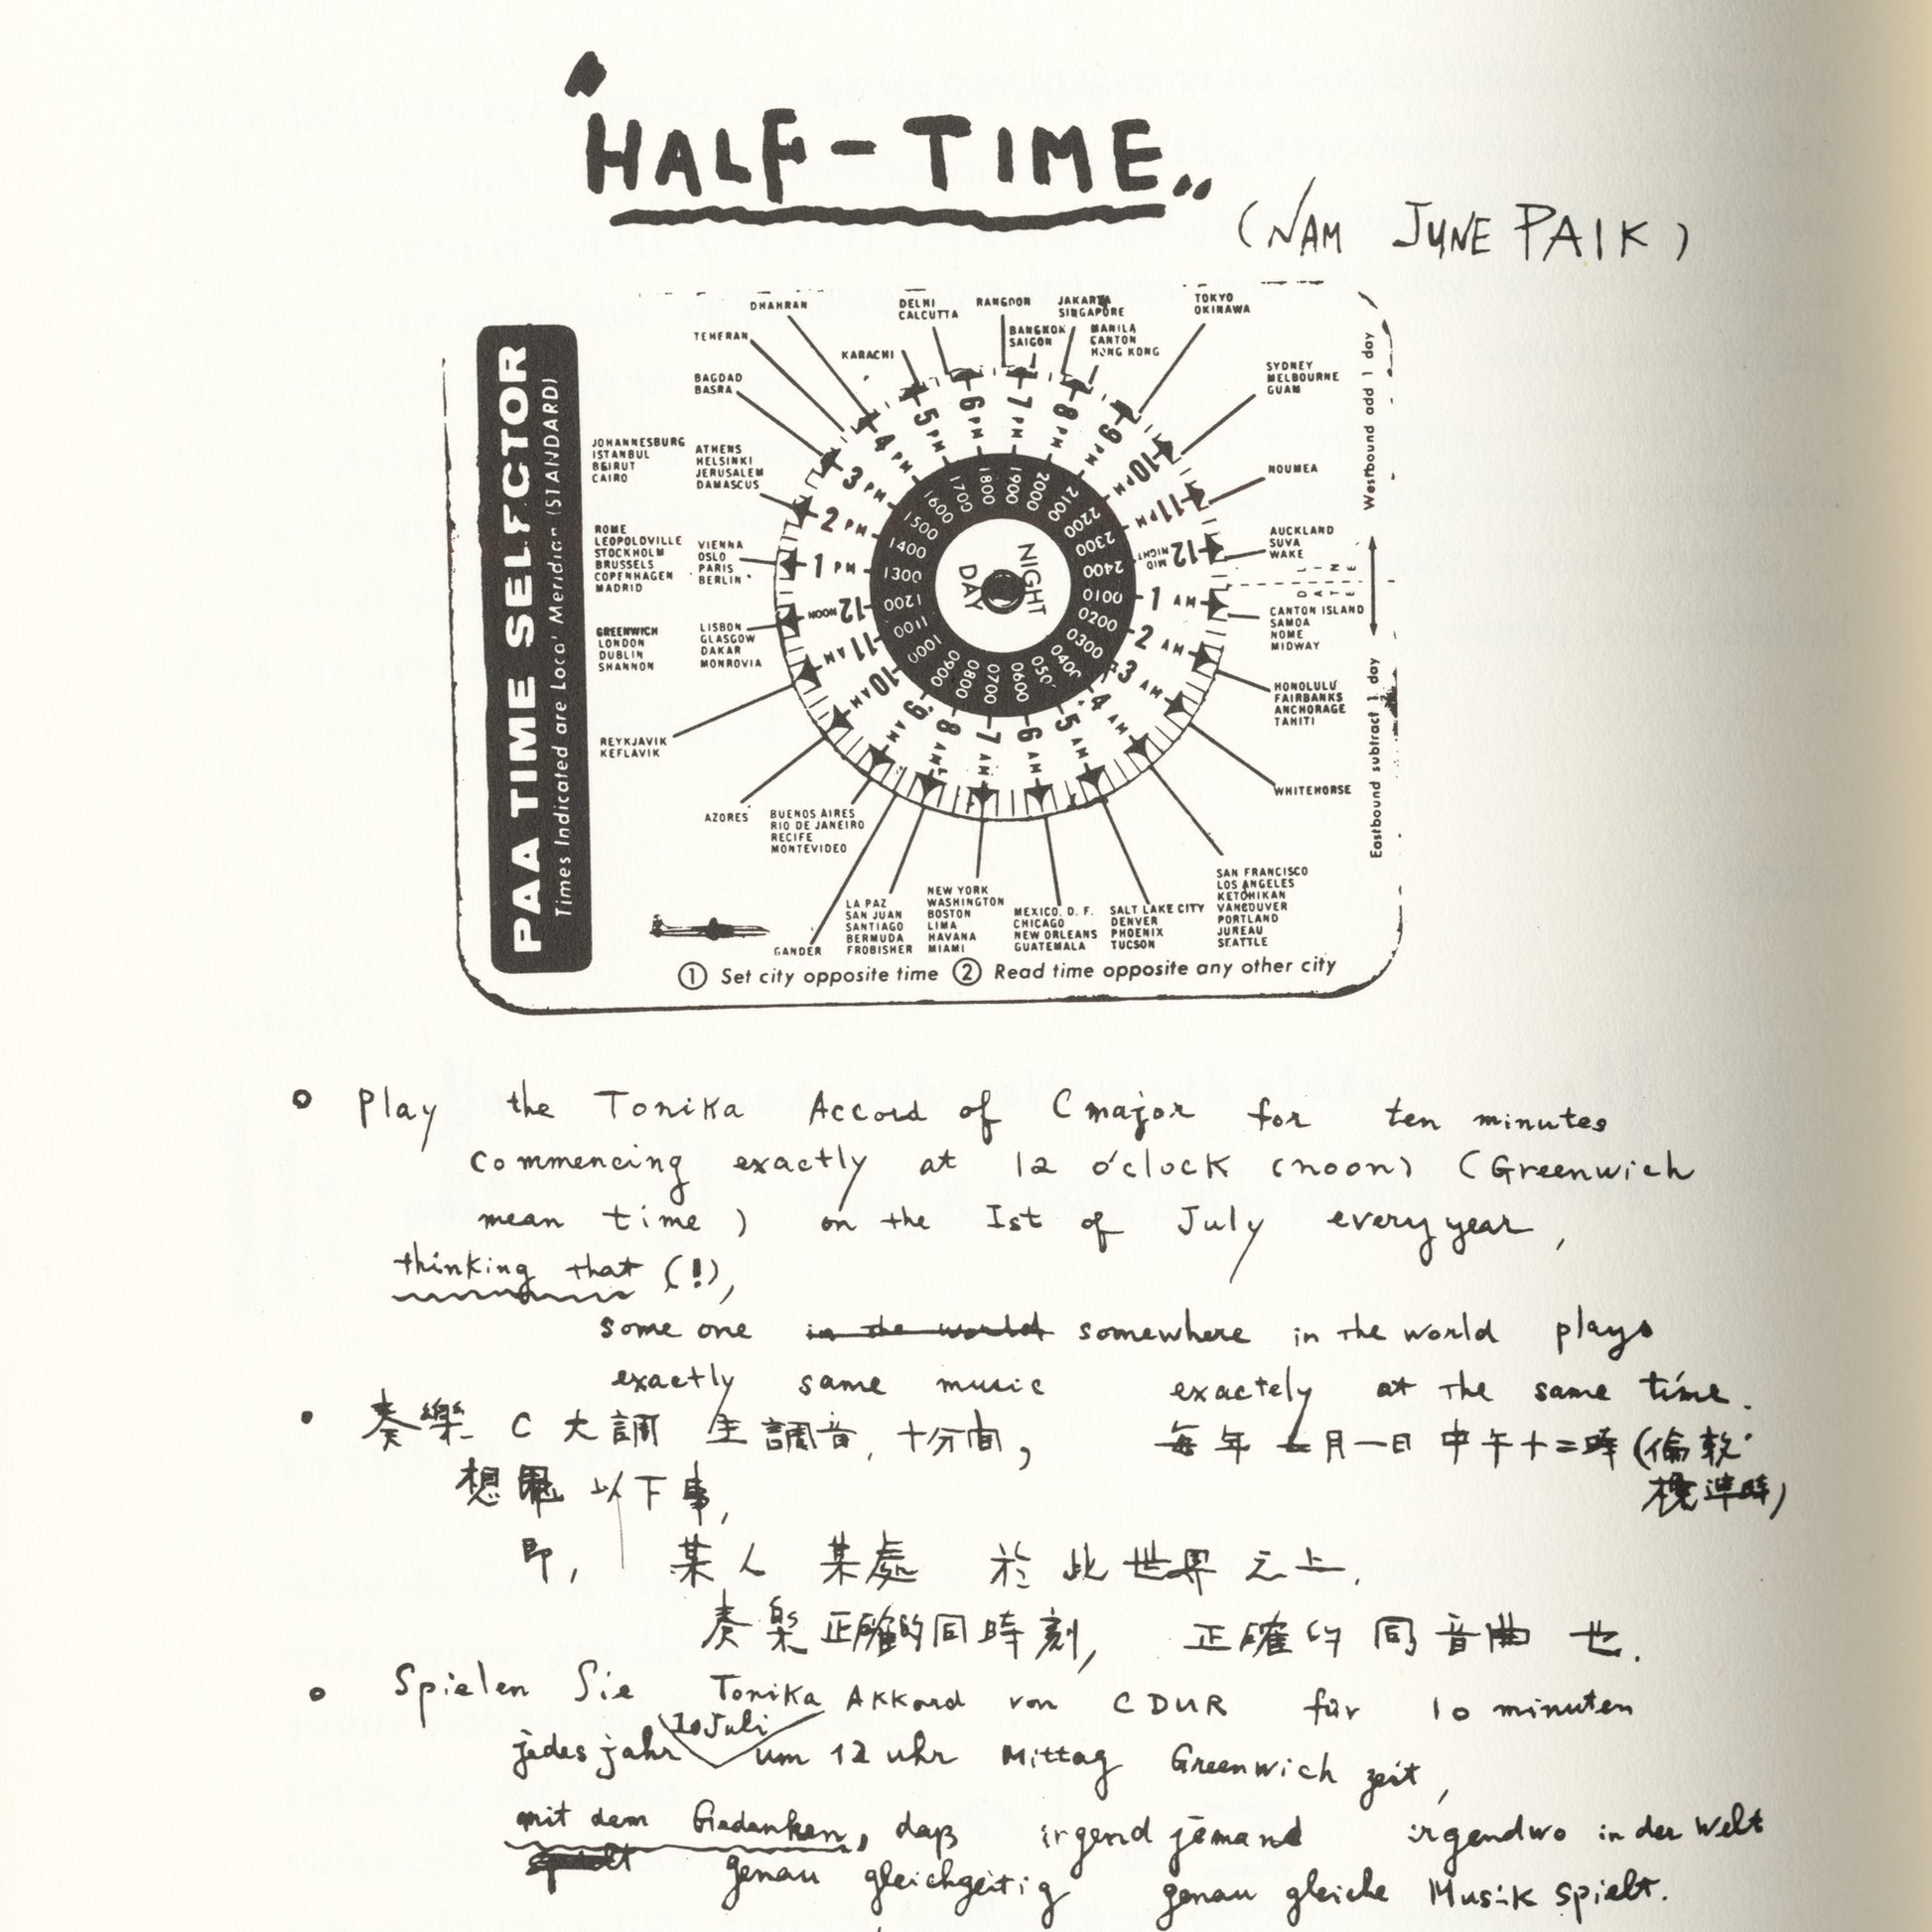 "HALF-TIME"
(NAM JUNE PAIK)
PAA TIME SELECTOR
Times Indicated are Local Meridian (STANDARD)
DHAHRAN
TEHERAN
BAGDAD
BASRA
KARACHI
DELHI
CALCUTTA
RANGOON
BANGKOK
SAIGON
JAKARTA
SINGAPORE
MANILA
CANTON
HONG KONG
TOKYO
OKINAWA
SYDNEY
MELBOURNE
GUAM
NOUMEA
AUCKLAND
SUVA
WAKE
DATE LINE
CANTON ISLAND
SAMOA
NOME
MIDWAY
HONOLULU
FAIRBANKS
ANCHORAGE
TAHITI
WHITEHORSE
SAN FRANCISCO
LOS ANGELES
KETCHIKAN
VANCOUVER
PORTLAND
JUREAU
SEATTLE
SALT LAKE CITY
DENVER
PHOENIX
TUCSON
MEXICO, D. F.
CHICAGO
NEW ORLEANS
GUATEMALA
NEW YORK
WASHINGTON
BOSTON
LIMA
HAVANA
MIAMI
LA PAZ
SAN JUAN
SANTIAGO
BERMUDA
FROBISHER
GANDER
BUENOS AIRES
RIO DE JANEIRO
RECIFE
MONTEVIDEO
AZORES
REYKJAVIK
KEFLAVIK
GREENWICH
LONDON
DUBLIN
SHANNON
LISBON
GLASGOW
DAKAR
MONROVIA
ROME
LEOPOLDVILLE
STOCKHOLM
BRUSSELS
COPENHAGEN
MADRID
VIENNA
OSLO
PARIS
BERLIN
JOHANNESBURG
ISTANBUL
BEIRUT
CAIRO
ATHENS
HELSINKI
JERUSALEM
DAMASCUS
1 PM
2 PM
3 PM
4 PM
5 PM
6 PM
7 PM
8 PM
9 PM
10 PM
11 PM
12 MID NIGHT
1 AM
2 AM
3 AM
4 AM
5 AM
6 AM
7 AM
8 AM
9 AM
10 AM
11 AM
12 NOON
1300
1400
1500
1600
1700
1800
1900
2000
2100
2200
2300
2400
0100
0200
0300
0400
050
0600
0700
0800
0900
1000
1100
1200
NIGHT
DAY
Westbound add 1 day
Eastbound subtract 1 day
① Set city opposite time ② Read time opposite any other city
○ Play the Tonika Accord of C major for ten minutes
commencing exactly at 12 o'clock (noon) (Greenwich
mean time) on the Ist of July every year,
thinking that (!),
some one in the world somewhere in the world plays
exactly same music exactely at the same time.
• 奏樂 C 大調 主調音, 十分间, 每年 七月一日 中午十二時 (倫敦
標準時)
想 以下事,
即, 某人 某處 於 此世界 之上,
奏樂 正確的同時刻, 正確的 同音曲 也.
○ Spielen Sie Tonika Akkord von C DUR für 10 minuten
jedes jahr 1o Juli um 12 uhr Mittag Greenwich zeit,
mit dem Gedanken, daß irgend jemand irgendwo in der Welt
spielt genau gleichzeitig genau gleiche Musik spielt.